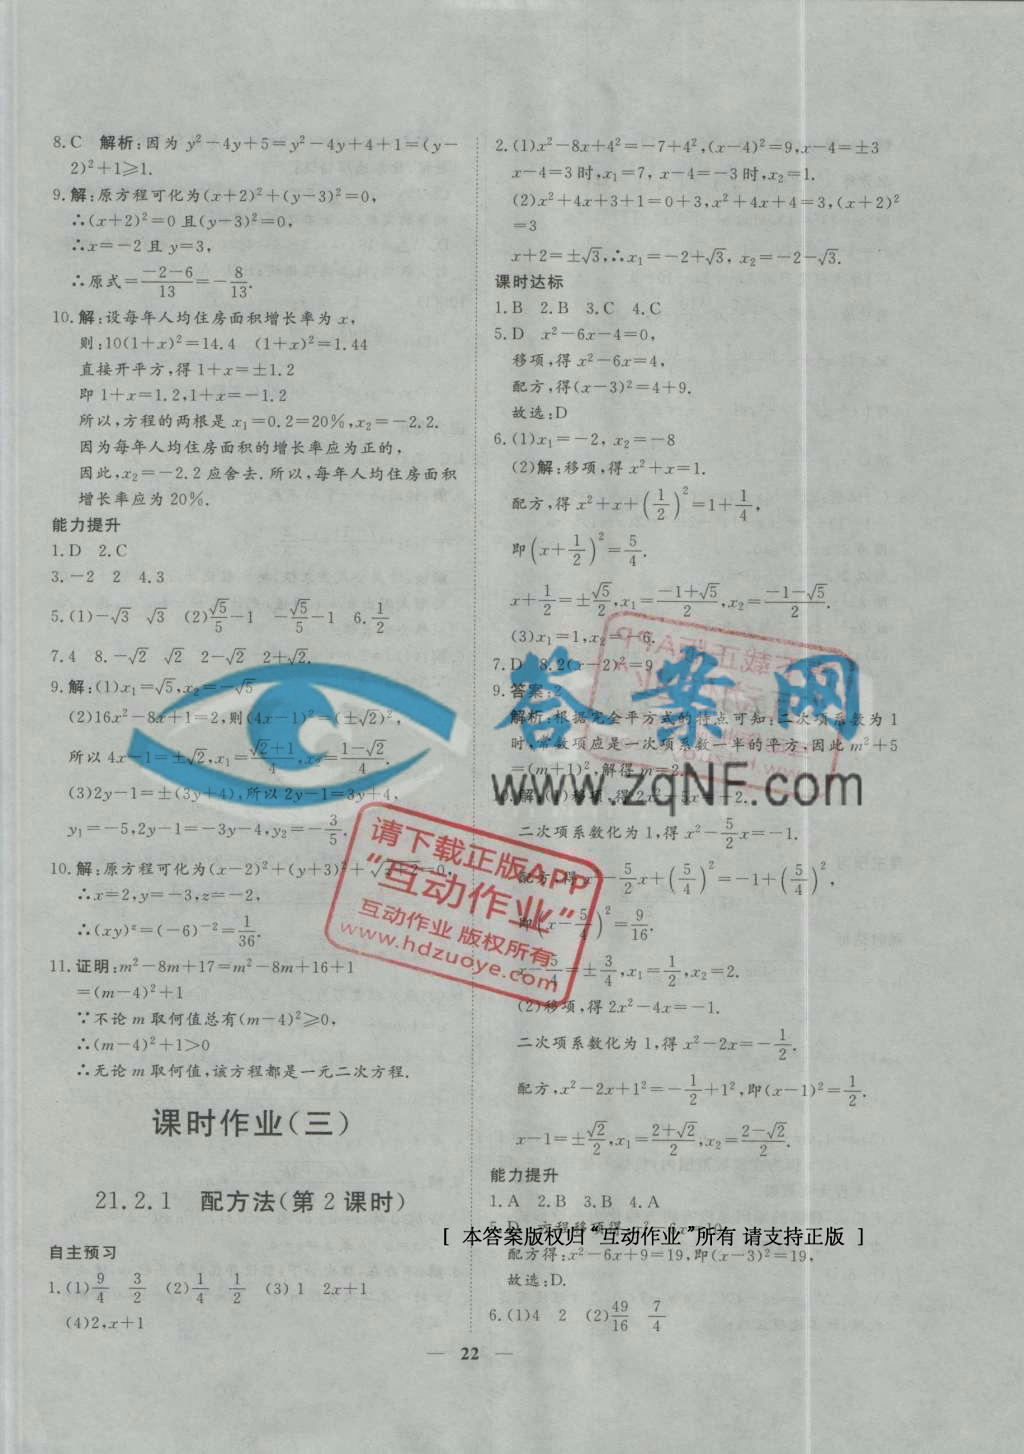 8.C 解析:因为 y²－4y＋5＝y²－4y＋4＋1＝(y－
2)²＋1⩾1.
9.解:原方程可化为(x＋2)²＋(y－3)²＝0,
∴(x＋2)²＝0 且(y－3)²＝0,
∴x＝－2 且 y＝3,
∴原式＝(－2－6)/13＝－8/13.
10.解:设每年人均住房面积增长率为 x,
则:10(1＋x)²＝14.4 (1＋x)²＝1.44
直接开平方,得 1＋x＝±1.2
即 1＋x＝1.2,1＋x＝－1.2
所以,方程的两根是 x₁＝0.2＝20%,x₂＝－2.2.
因为每年人均住房面积的增长率应为正的,
因此,x₂＝－2.2 应舍去.所以,每年人均住房面积
增长率应为 20%.
能力提升
1.D 2.C
3.－2 2 4.3
5.(1)－√3 √3 (2)√5/5－1 －√5/5－1 6.1/2
7.4 8.－√2 √2 2－√2 2＋√2.
9.解:(1)x₁＝√5,x₂＝－√5
(2)16x²－8x＋1＝2,则(4x－1)²＝(±√2)²,
所以 4x－1＝±√2,x₁＝(√2＋1)/4,x₂＝(1－√2)/4.
(3)2y－1＝±(3y＋4),所以 2y－1＝3y＋4,
y₁＝－5,2y－1＝－3y－4,y₂＝－3/5.
10.解:原方程可化为(x－2)²＋(y＋3)²＋√(z＋2)＝0,
∴x＝2,y＝－3,z＝－2,
∴(xy)ᶻ＝(－6)⁻²＝1/36.
11.证明:m²－8m＋17＝m²－8m＋16＋1
＝(m－4)²＋1
∵不论 m 取何值总有(m－4)²⩾0,
∴(m－4)²＋1>0
∴无论 m 取何值,该方程都是一元二次方程.
课时作业(三)
21.2.1 配方法(第 2 课时)
自主预习
1.(1)9/4 3/2 (2)1/4 1/2 (3)1 2x＋1
(4)2,x＋1
2.(1)x²－8x＋4²＝－7＋4²,(x－4)²＝9,x－4＝±3
x－4＝3 时,x₁＝7, x－4＝－3 时,x₂＝1.
(2)x²＋4x＋3＋1＝0＋3,x²＋4x＋4＝3,(x＋2)²
＝3
x＋2＝±√3,∴x₁＝－2＋√3, x₂＝－2－√3.
课时达标
1.B 2.B 3.C 4.C
5.D x²－6x－4＝0,
移项,得 x²－6x＝4,
配方,得(x－3)²＝4＋9.
故选:D
6.(1)x₁＝－2, x₂＝－8
(2)解:移项,得 x²＋x＝1.
配方,得 x²＋x＋(1/2)²＝1＋1/4,
即(x＋1/2)²＝5/4.
x＋1/2＝±√5/2,x₁＝(－1＋√5)/2,x₂＝(－1－√5)/2.
(3)x₁＝1,x₂＝－6.
7.D 8.2(x－2)²＝9
9.答案:2
解析:根据完全平方式的特点可知:二次项系数为 1
时,常数项应是一次项系数一半的平方,因此 m²＋5
＝(m＋1)²,解得 m＝2.
10.解:(1)移项,得 2x²－5x＝－2.
二次项系数化为 1,得 x²－5/2x＝－1.
配方,得 x²－5/2x＋(5/4)²＝－1＋(5/4)²,
即(x－5/4)²＝9/16.
x－5/4＝±3/4,x₁＝1/2,x₂＝2.
(2)移项,得 2x²－4x＝－1.
二次项系数化为 1,得 x²－2x＝－1/2.
配方,x²－2x＋1²＝－1/2＋1²,即(x－1)²＝1/2.
x－1＝±√2/2,x₁＝(2＋√2)/2,x₂＝(2－√2)/2.
能力提升
1.A 2.B 3.B 4.A
5.D 方程移项得:x²－6x＝10,
[ 本答案版权归“互动作业”所有 请支持正版 ]
配方得:x²－6x＋9＝19,即(x－3)²＝19,
故选:D.
6.(1)4 2 (2)49/16 7/4
— 22 —
答案网
www.zqNF.com
请下载正版APP
“互动作业”
互动作业 版权所有
www.hdzuoye.com